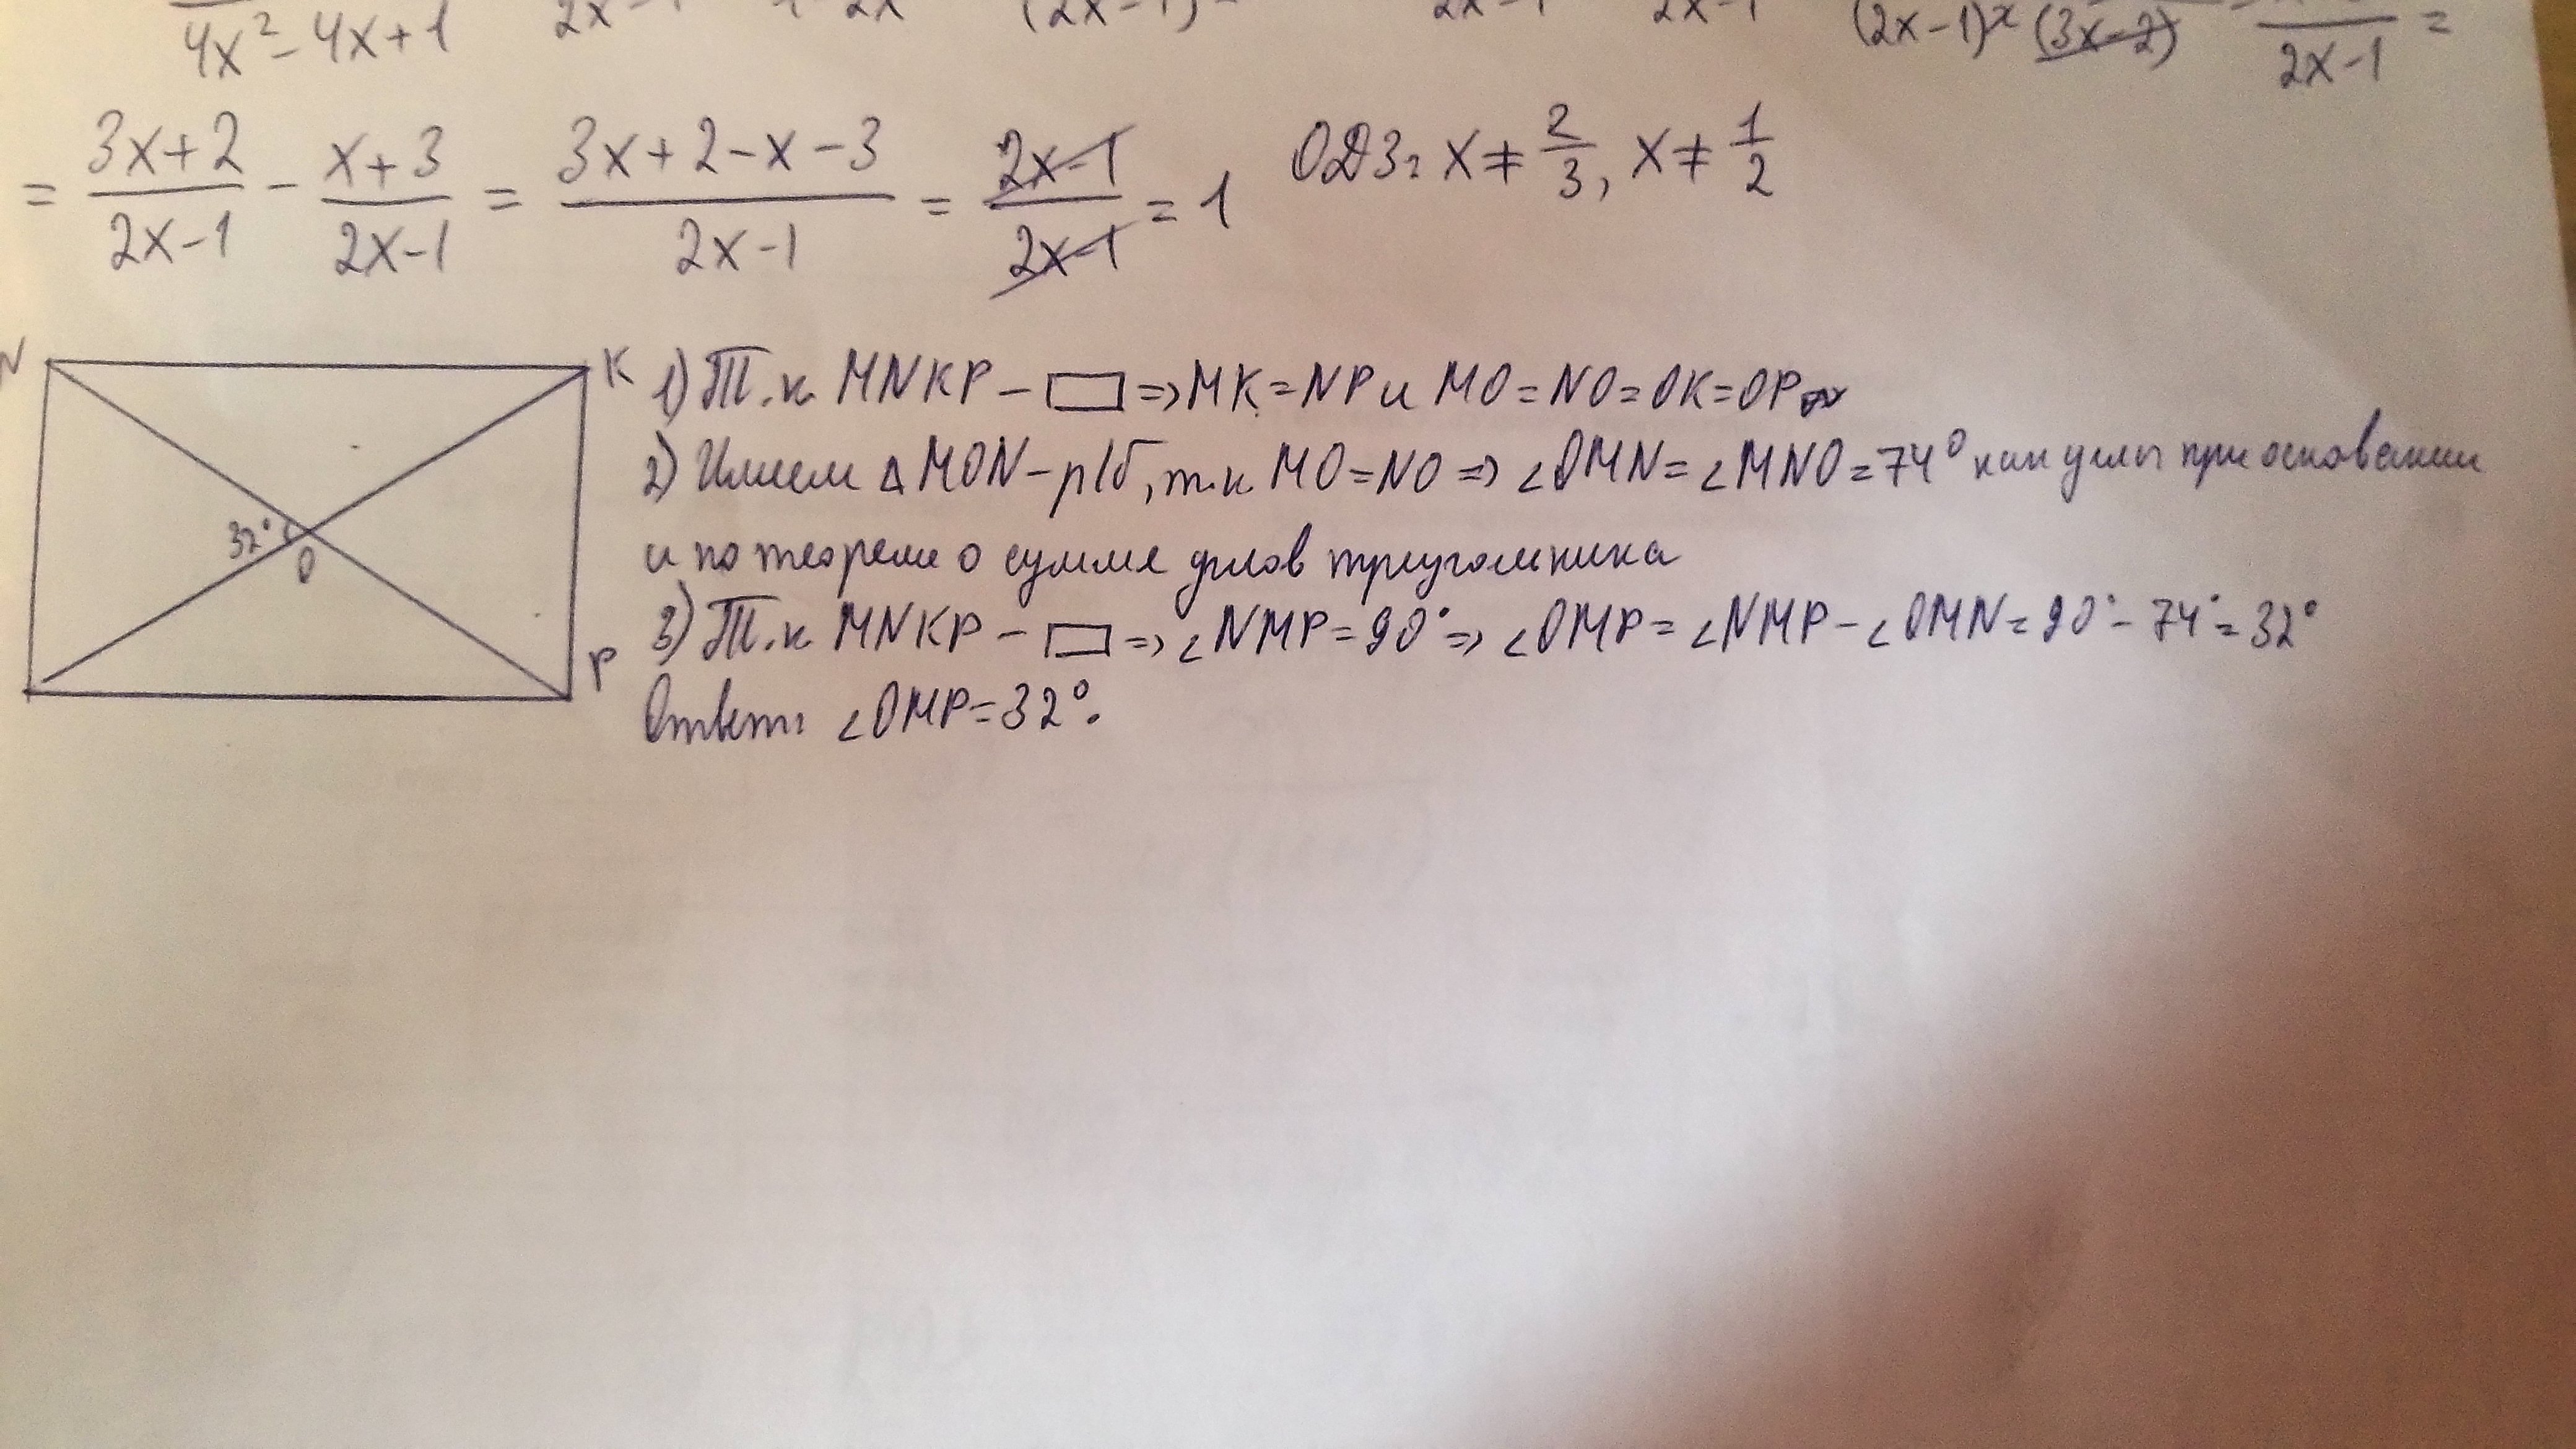 4x² - 4x + 1 2x - 1 (2x-1) 2x-1 2x-1 (2x-1)² (3x-2) 2x-1 =
= (3x+2)/(2x-1) - (x+3)/(2x-1) = (3x+2-x-3)/(2x-1) = (2x-1)/(2x-1) = 1 ОДЗ: x ≠ 2/3, x ≠ 1/2
N K
32° O
P
1) Т.к MNKP - ▭ => MK = NP и MO = NO = OK = OP
2) Имеем △MON - р/б, т.к MO = NO => ∠OMN = ∠MNO = 74° как углы при основании
и по теореме о сумме углов треугольника
3) Т.к MNKP - ▭ => ∠NMP = 90° => ∠OMP = ∠NMP - ∠OMN = 90° - 74° = 32°
Ответ: ∠OMP = 32°.